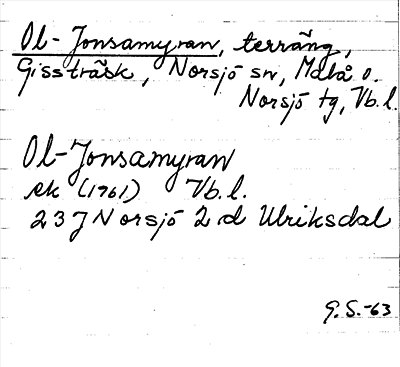 Ol-Jonsamyran, terräng,
Gissträsk, Norsjö sn, Malå o.
Norsjö tg, Vb.l.
Ol-Jonsamyran
ek (1961) Vb.l.
23J Norsjö 2 d Ulriksdal
G.S.-63